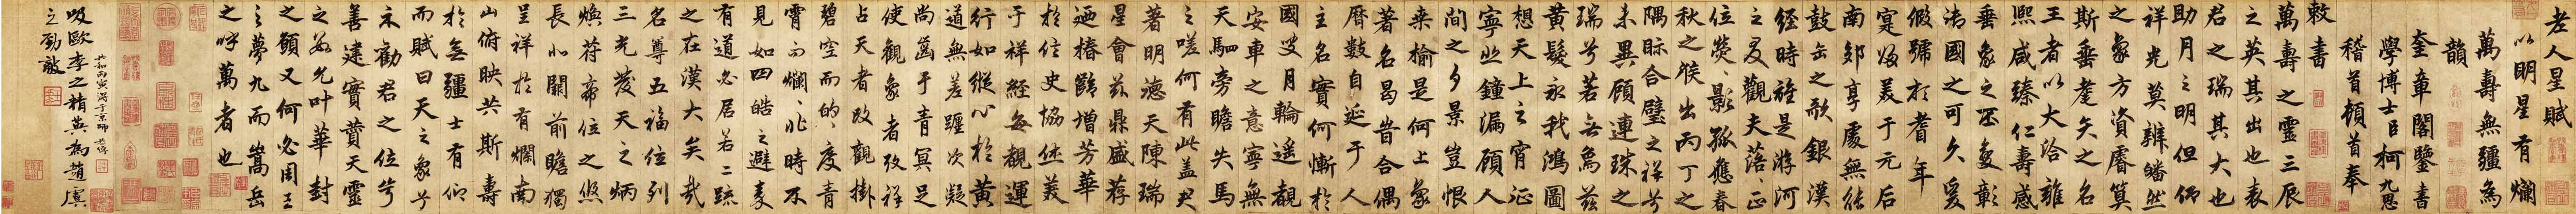 老人星賦
以明星有爛
萬壽無疆為
韻
奎章閣鑒書
學博士臣柯九思
稽首頓首奉
敕書
萬壽之靈三辰
之英其出也表
君之瑞其大也
助月之明但仰
祥光莫辨皤然
之象方資睿算
斯垂耄矣之名
王者以大洽雍
熙咸臻仁壽感
垂象之丕變彰
清國之可久爰
假號於耆年
寔發美于元后
南郊享處無結
鼓缶之歌銀漢
經時誰是游河
之叟觀夫落落正
位熒熒影孤應春
秋之候出丙丁之
隅眎合璧之祥兮
未異顧連珠之
瑞兮若無為茲
黃髮永我鴻圖
想天上之宵征
寧悲鐘漏顧人
間之夕景豈恨
桑榆是何上象
著名曷昔合偶
曆數自延于人
主名實何慚於
國叟月輪遙覩
安車之意寧無
天駟旁瞻失馬
之嗟何有此蓋君
著明德天陳瑞
星會茲鼎盛荐
迺椿齡增芳華
於信史協休美
于祥經每覩運
行如縱心於黃
道無差躔次凝
尚齒于青冥足
使觀象者考祥
占天者改觀掛
碧空而的的度青
霄而爛爛北時不
見如四皓之避秦
有道必居若二疏
之在漢大矣哉
名尊五福位列
三光發天之炳
煥符帝位之悠
長北闕前瞻獨
呈祥於有爛南
山俯映共斯壽
於無疆士有仰
而賦曰天之象兮
示勸君之位兮
善建實賚天靈
之姿允叶華封
之願又何必周王
之夢九而嵩岳
之呼萬者也
吸歐李之精英為趙虞
之勁敵